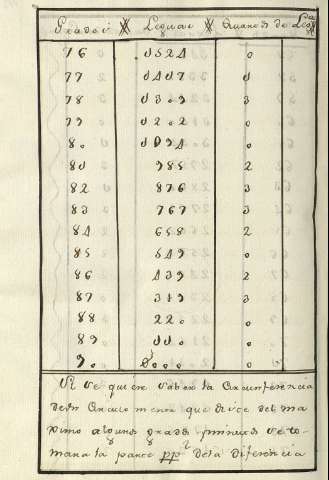 Grados Leguas Quartos de Lega
76 1524 0
77 1417 1
78 1309 3
79 1202 0
80 1094 0
81 985 2
82 876 3
83 767 3
84 658 2
85 549 0
86 439 2
87 329 3
88 220 0
89 110 0
90 0000 0
Si se quiere saber la Circunferencia
de un Circulo menor que diste del ma
ximo algunos grads minuos se to-
mara la parte ppl dela diferencia